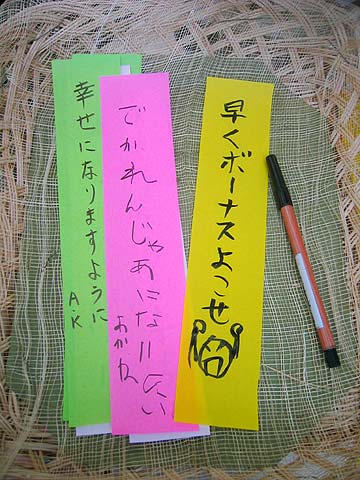 早くボーナスよこせ
でかれんじゃあになりたい
おがわ
幸せになりますように
A.K